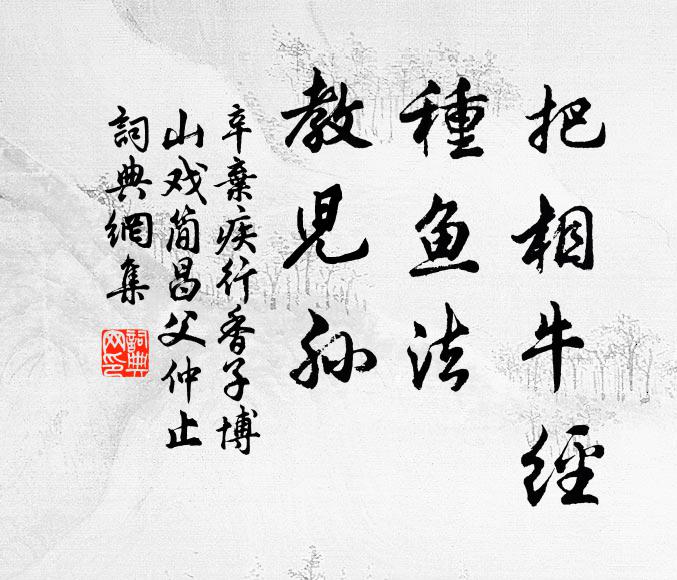 把相牛經
種鱼法
教兒孙
辛棄疾行香子博
山戏简昌父仲止
詞典網集
詞典
网印